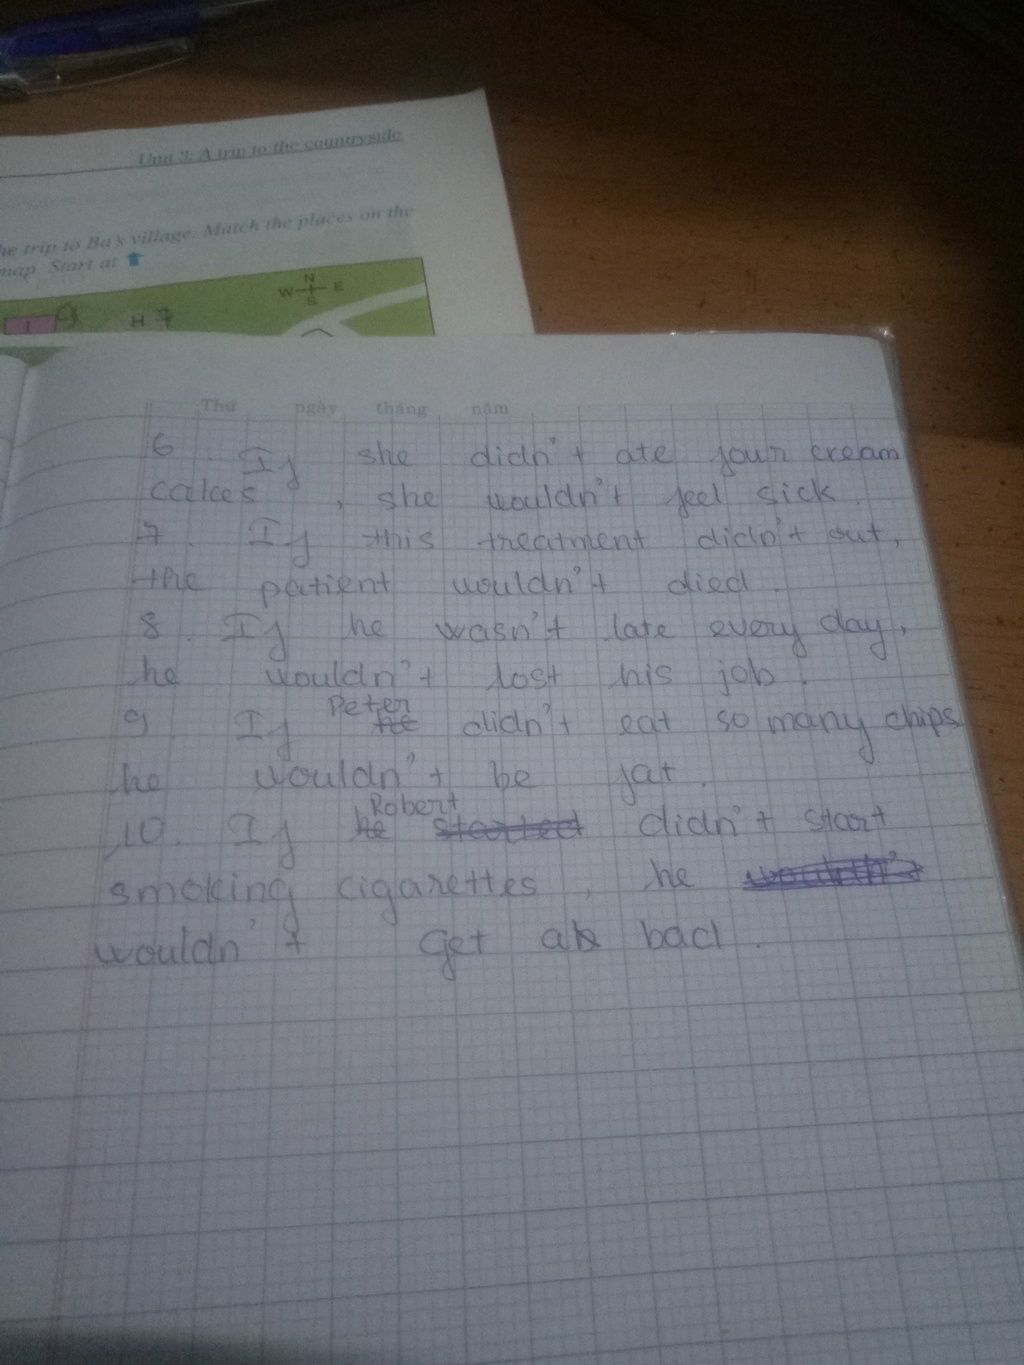 Unit 3: A trip to the countryside
he trip to Ba's village. Match the places on the
map. Start at
N
W E
S
1 G H 7
Thứ ngày tháng năm
6 If she didn't ate four cream
cakes , she wouldn't feel sick
7. If this treatment didn't out,
the patient wouldn't died.
8. If he wasn't late every day,
he wouldn't lost his job.
Peter
9 If he didn't eat so many chips
he wouldn't be fat.
Robert
10. If he started didn't start
smoking cigarettes , he
wouldn't get bad.